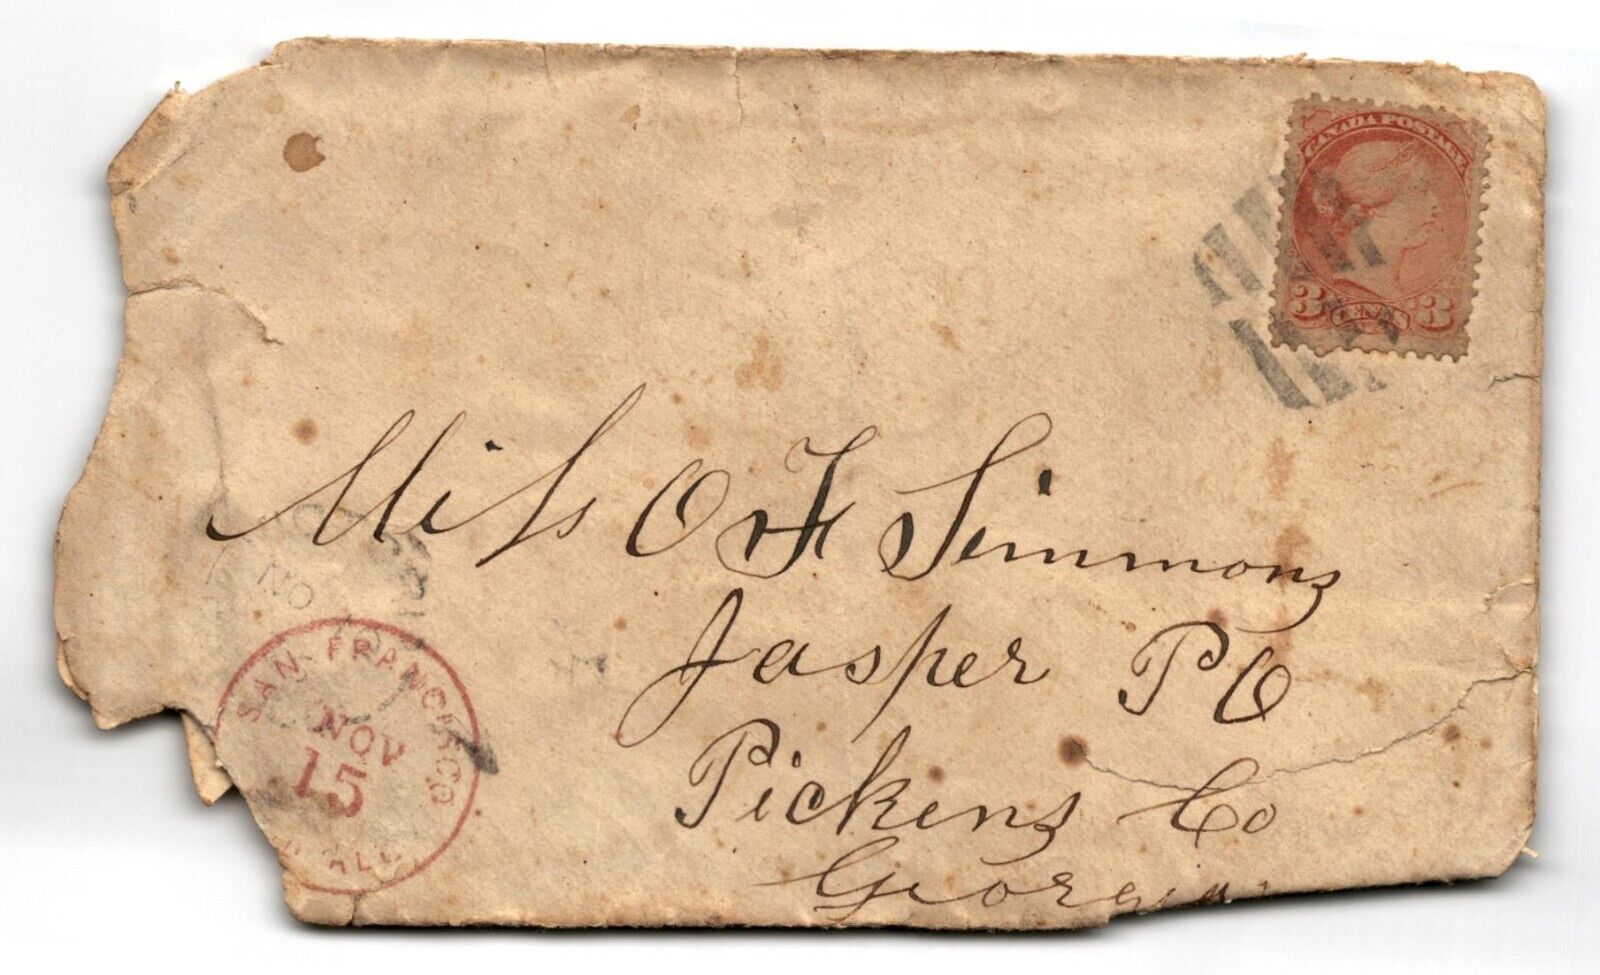 CANADA POSTAGE
3 CENTS 3
Miss O F Simmons
Jasper P O
Pickens Co
Georgia
NO
SAN FRANCISCO
NOV
15